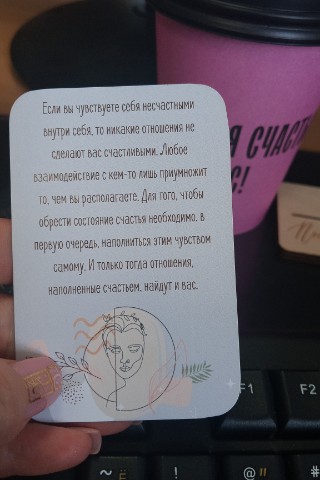 Если вы чувствуете себя несчастными
внутри себя, то никакие отношения не
сделают вас счастливыми. Любое
взаимодействие с кем-то лишь приумножит
то, чем вы располагаете. Для того, чтобы
обрести состояние счастья необходимо, в
первую очередь, наполниться этим чувством
самому. И только тогда отношения,
наполненные счастьем, найдут и вас.
Я СЧАСТ
С!
F1
F2
~ Ё
!
@ "
#